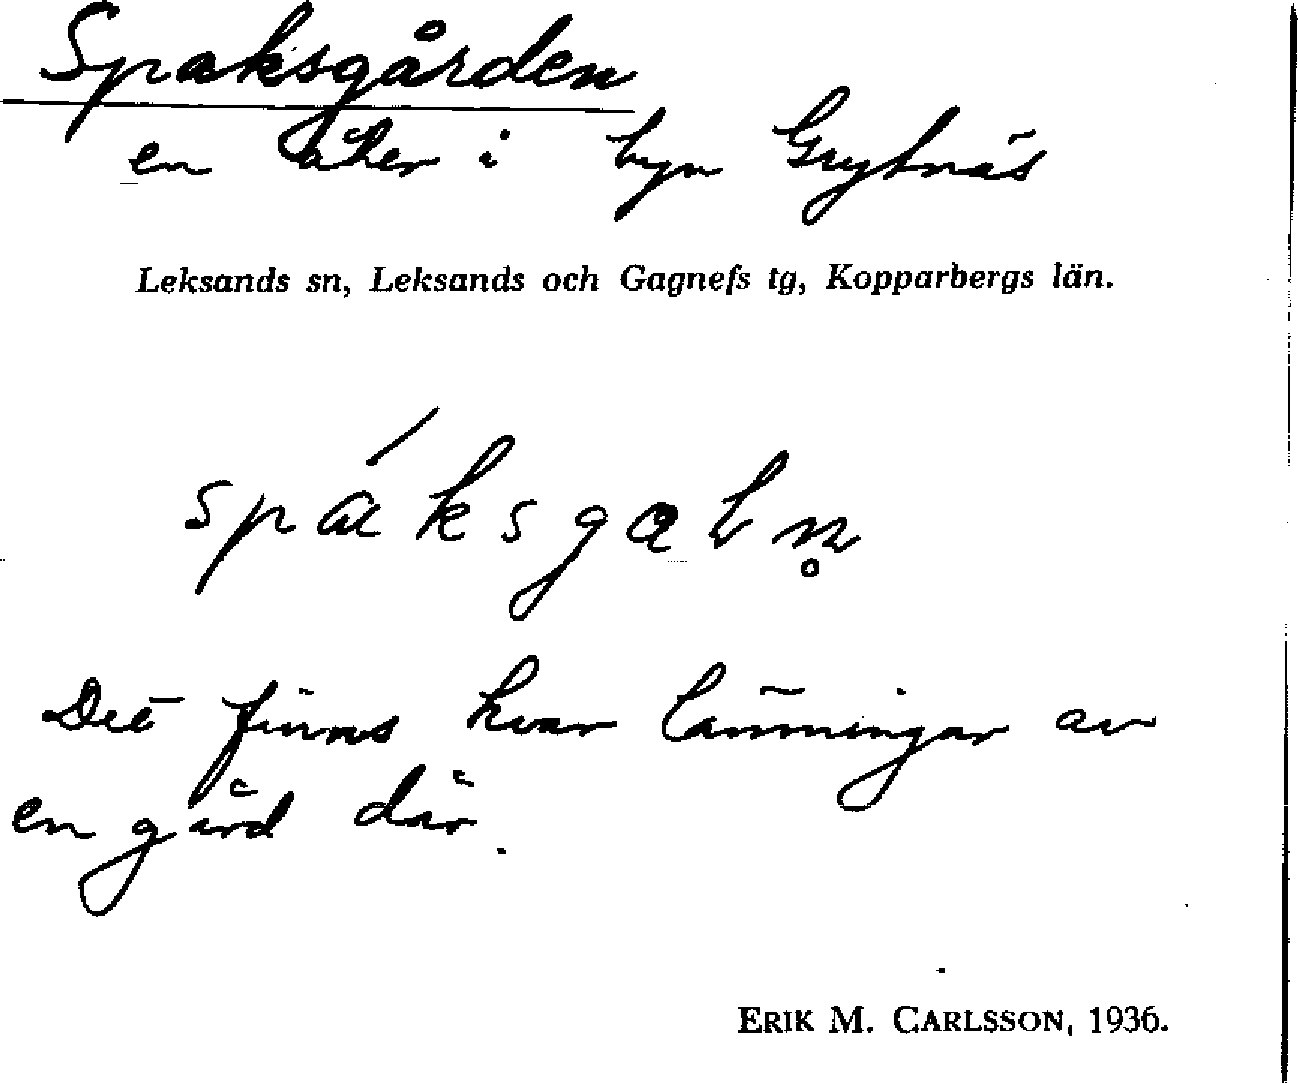 Spaksgården
en åker i byn Grytnäs
Leksands sn, Leksands och Gagnefs tg, Kopparbergs län.
Det finns kvar lämningar av
en gård där.
ERIK M. CARLSSON, 1936.